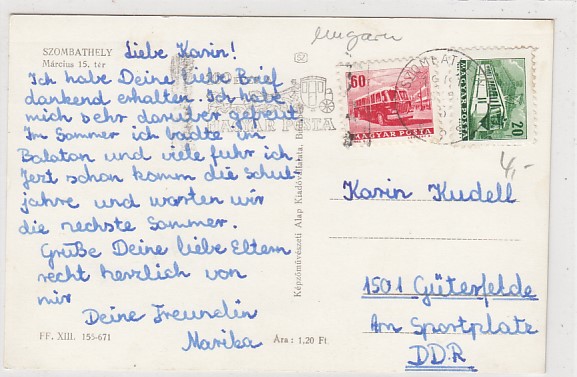 SZOMBATHELY
Március 15. tér
Liebe Karin!
Ich habe Deine liebe Brief
dankend erhalten. Ich habe
mich sehr darüver gefreut
Im Sommer ich badte im
Balaton und viele fuhr ich.
Jezt schon komm die Schul-
jahre und warten wir
die nechste Sommer.
Grüße Deine liebe Eltern
recht herzlich von
mir
Deine Freundin
Marika
FF. XIII. 155-671
Ára: 1,20 Ft
Képzőművészeti Alap Kiadóvállalata, Budapest
MAGYAR POSTA
60
MAGYAR POSTA
20
MAGYAR POSTA
4,-
Karin Kudell
1501 Güterfelde
Am Sportplate
DDR